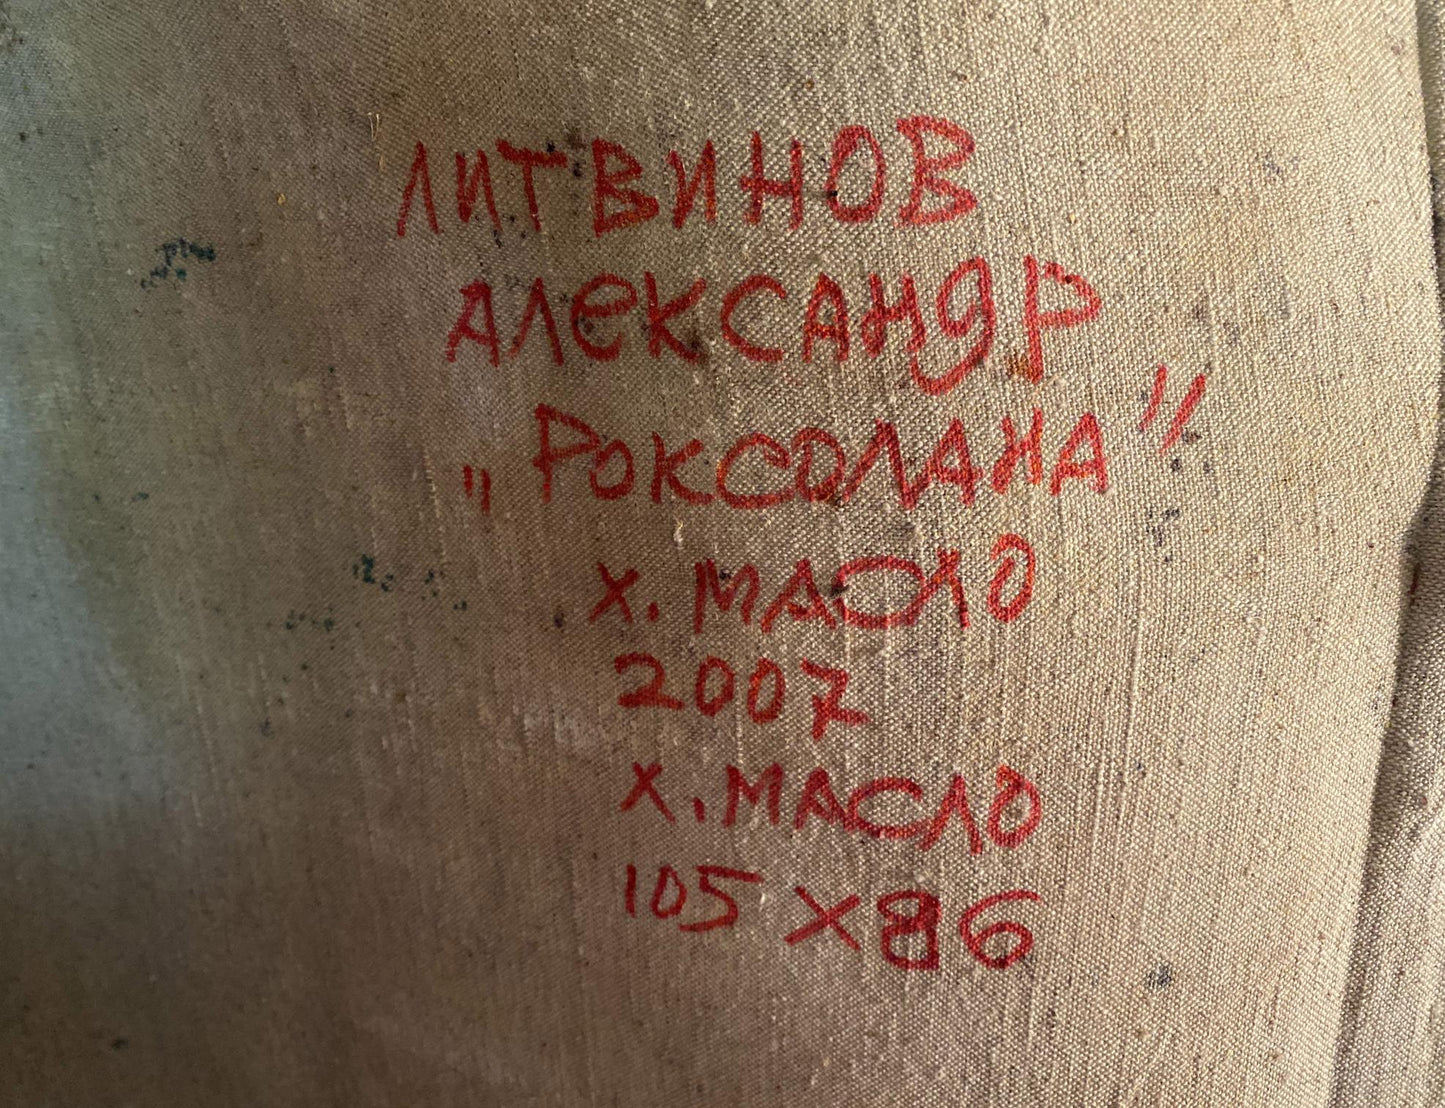 ЛИТВИНОВ
АЛЕКСАНДР
„РОКСОЛАНА"
х. МАСЛО
2007
х. МАСЛО
105 х 86